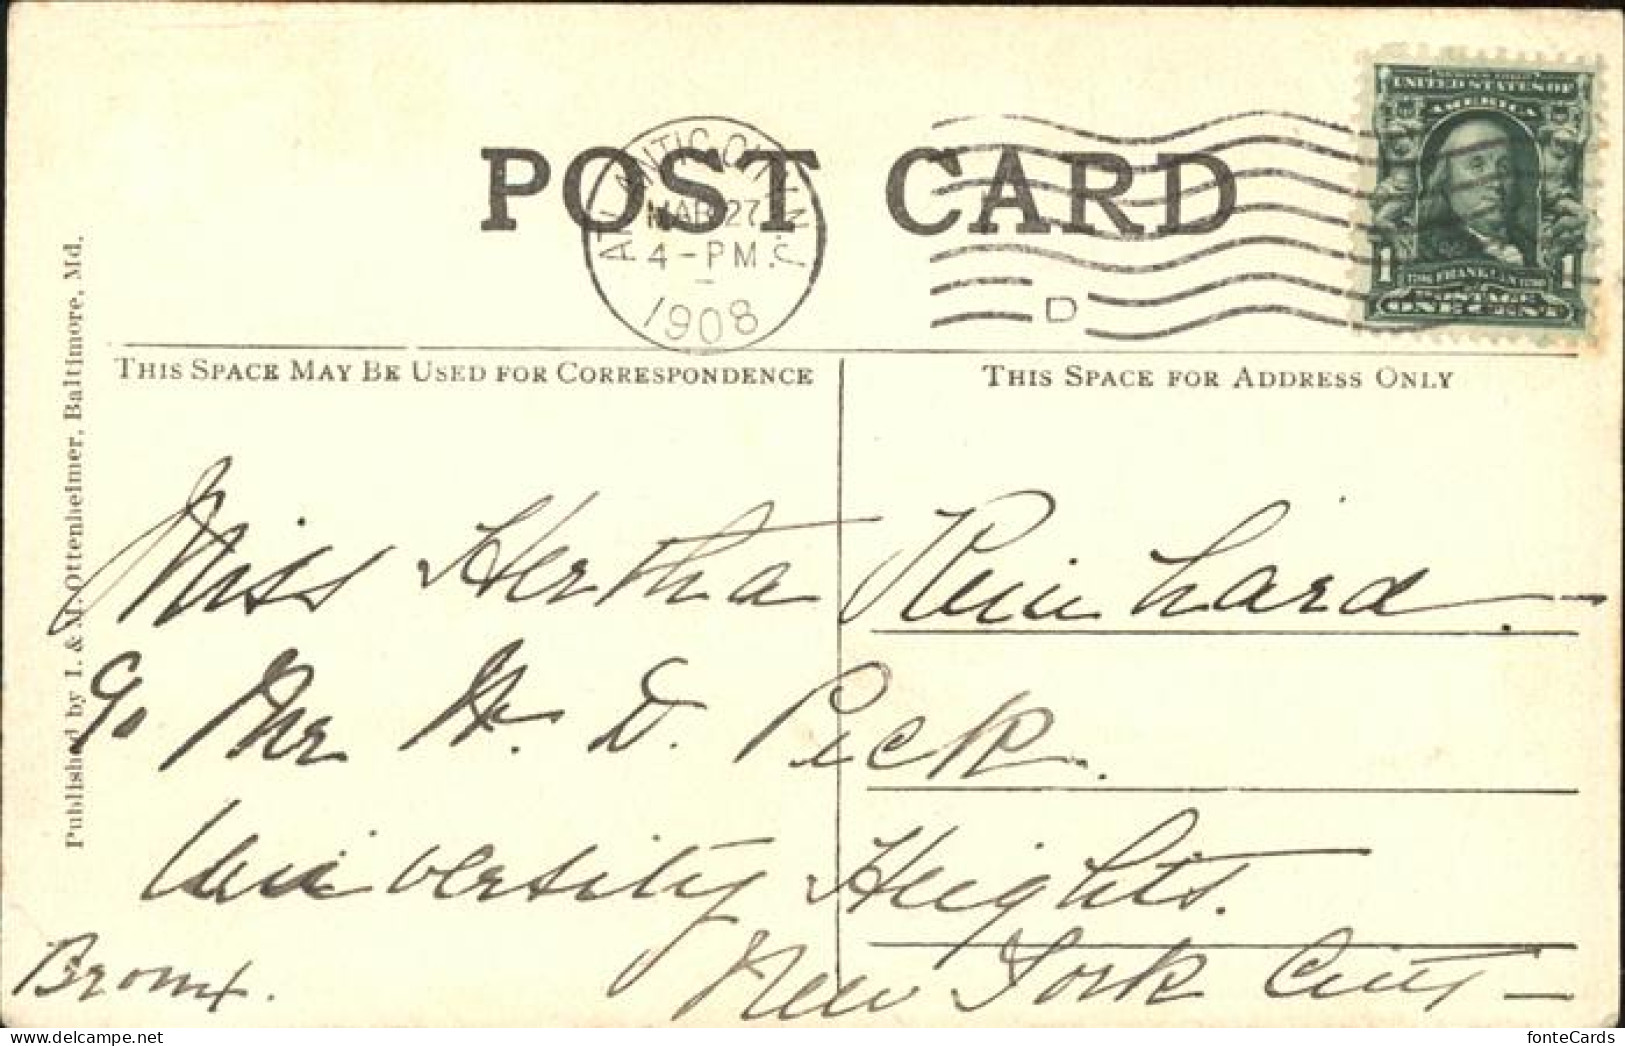 POST CARD
ATLANTIC CITY, N.J.
MAR 27
4-PM.
1908
D
SERIES 1902
UNITED STATES OF
AMERICA
1 1
FRANKLIN
POSTAGE
ONE CENT
THIS SPACE MAY BE USED FOR CORRESPONDENCE
THIS SPACE FOR ADDRESS ONLY
Published by I. & M. Ottenheimer, Baltimore, Md.
Miss Hertha Reinhard.
c/o Mr H. D. Peck.
University Heights.
Bronx. New York City
fonteCards